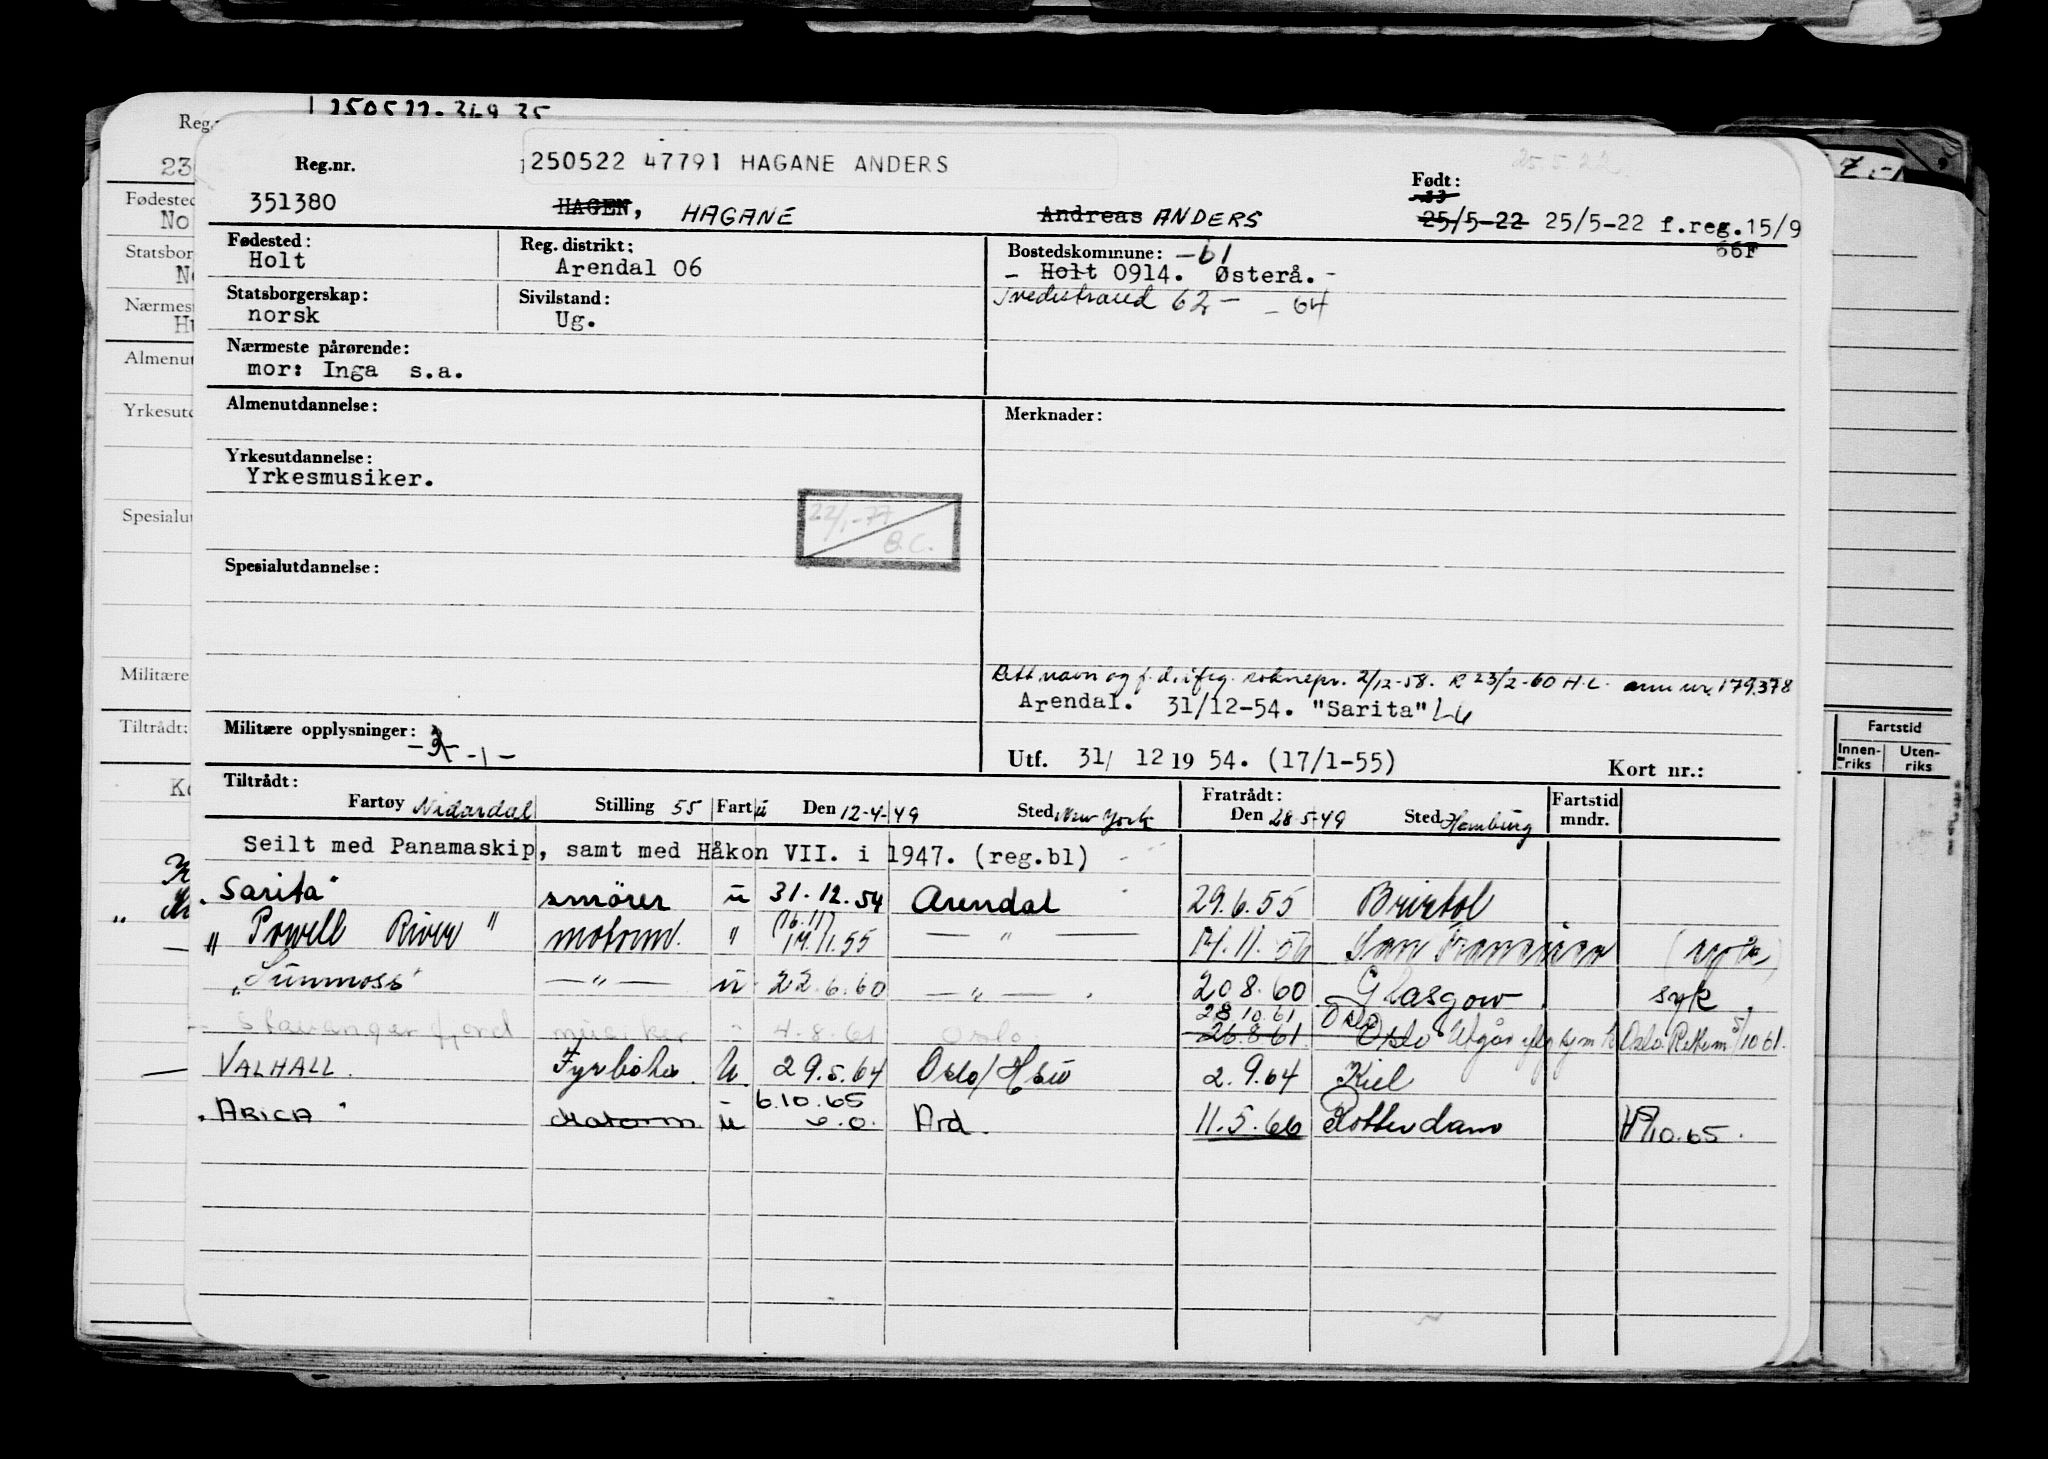 150522-369 35
Reg.
Reg.nr.
250522 47791 HAGANE ANDERS
25.5.22
Født:
351380
HAGEN, HAGANE
Andreas ANDERS
25/5-22 25/5-22 f.reg.15/9
66F
Fødested:
Holt
Reg. distrikt:
Arendal 06
Bostedskommune: -61
- Holt 0914. Østerå.-
Statsborgerskap:
norsk
Sivilstand:
Ug.
Tvedestrand 62 - - 64
Nærmeste pårørende:
mor: Inga s.a.
Almenutdannelse:
Merknader:
Yrkesutdannelse:
Yrkesmusiker.
22/1-77
Spesialutdannelse:
Rett navn og f.d. ifølg. 2/12-58. R 23/2-60 H.L. 179.378
Arendal. 31/12-54. "Sarita"
Militære opplysninger:
Utf. 31/ 12 19 54. (17/1-55)
Kort nr.:
Tiltrådt:
Fartøy Nidardal Stilling 55 Fart u Den 12-4-49 Sted New York
Fratrådt:
Den 28-5-49 Sted Hamburg
Fartstid
mndr.
Seilt med Panamaskip, samt med Håkon VII. i 1947. (reg.bl)
"Sarita" smører u 31.12.54 Arendal 29.6.55 Bristol
(16.11)
"Powell River" motorm. " 14.11.55 — " — 14.11.56 San Francisco
"Sunmoss" — " — u 22.6.60 — " — 20.8.60 Glasgow syk
28.10.61 Oslo
Stavangerfjord musiker " 4.8.61 Oslo 26.8.61 Oslo
VALHALL Fyrbøter u 29.5.64 Oslo/ 2.9.64 Kiel
6.10.65
"ARICA" Motorm u Ard. 11.5.66 Rotterdam /10.65.
Fødested
Statsbor
Nærmes
Almenut
Yrkesutd
Spesialut
Militære
Tiltrådt:
Fartstid
Innen-
riks
Uten-
riks